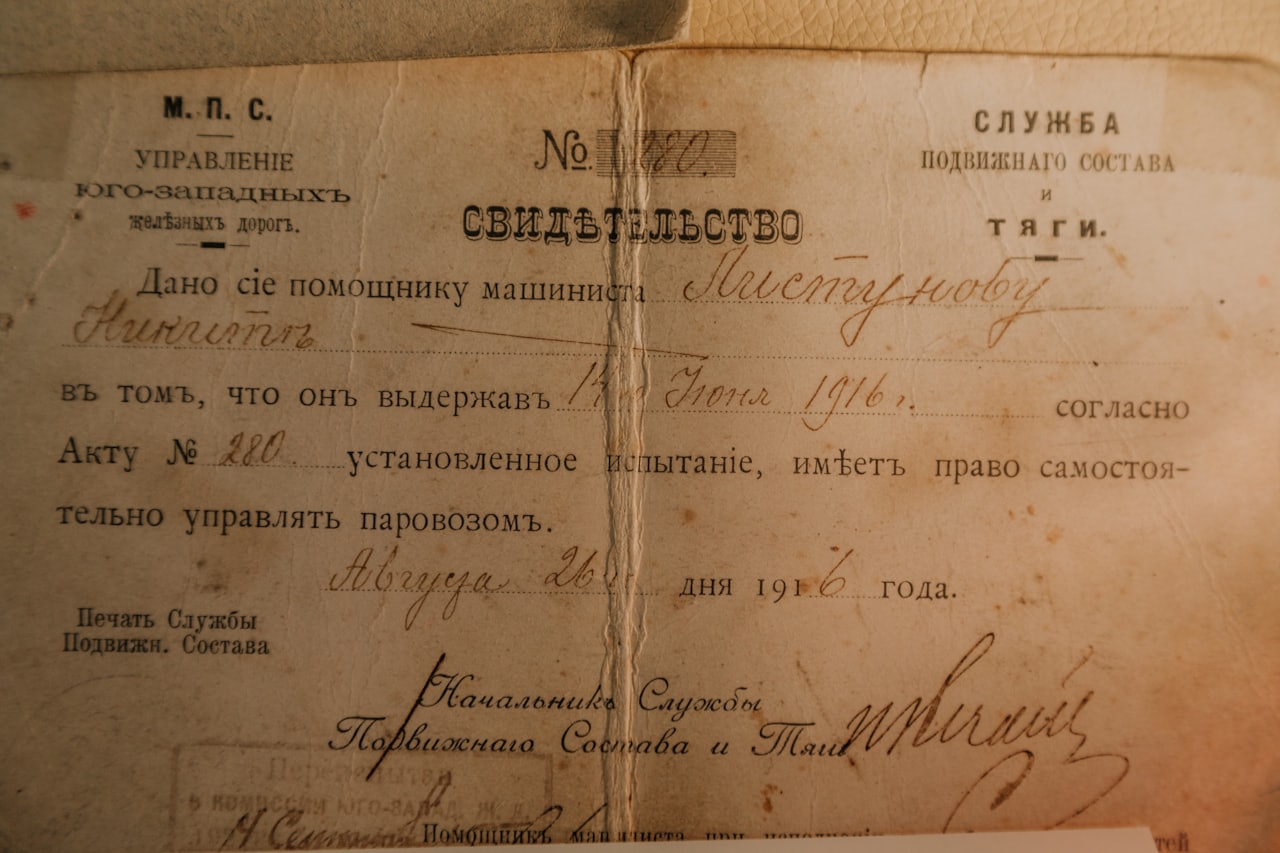 М. П. С.
УПРАВЛЕНІЕ
ЮГО-ЗАПАДНЫХЪ
желѣзныхъ дорогъ.
№ 280.
СЛУЖБА
ПОДВИЖНАГО СОСТАВА
И
ТЯГИ.
СВИДѢТЕЛЬСТВО
Дано сіе помощнику машиниста Листунову
Никитѣ
въ томъ, что онъ выдержавъ 14го Іюня 1916 г. согласно
Акту № 280. установленное испытаніе, имѣетъ право самостоя-
тельно управлять паровозомъ.
Августа 26 дня 1916 года.
Печать Службы
Подвижн. Состава
Начальникъ Службы
Подвижнаго Состава и Тяги
в комиссии юго-запад. ж. д.
Помощникъ машиниста при исполненіи